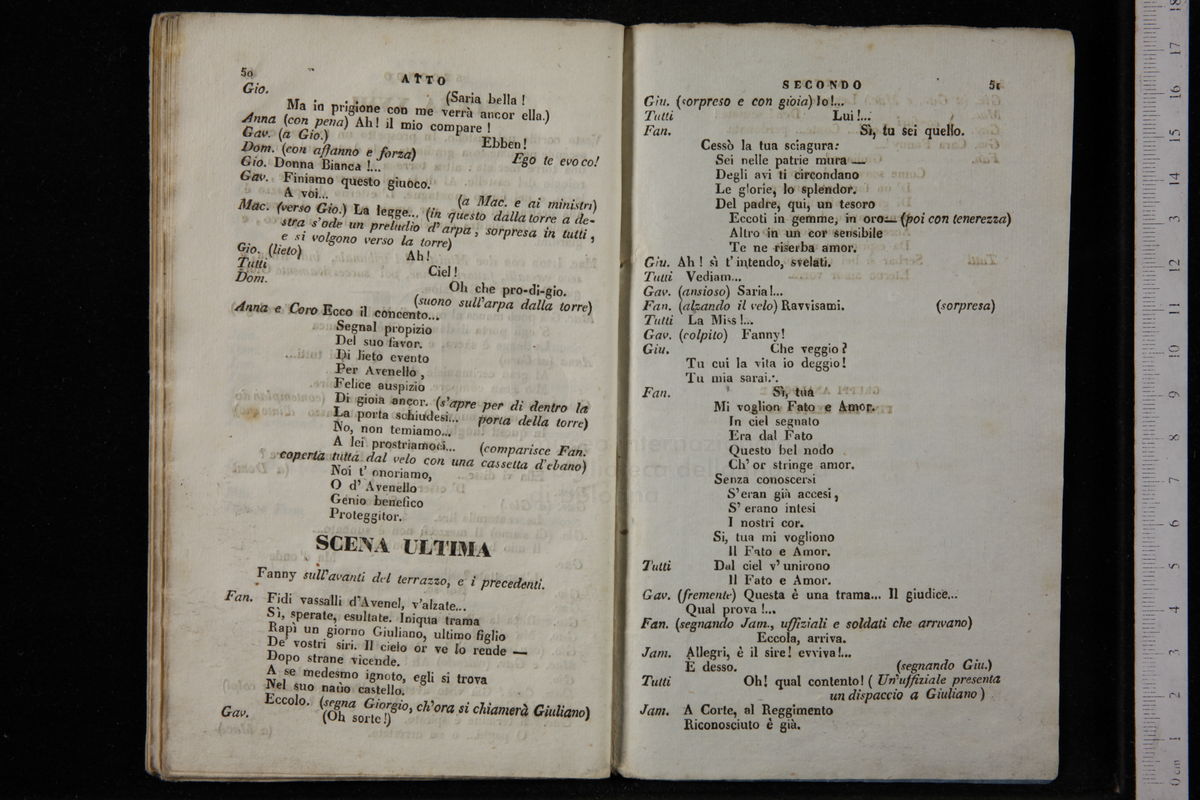 50
ATTO
Gio. (Saria bella !
Ma in prigione con me verrà ancor ella.)
Anna (con pena) Ah! il mio compare !
Gav. (a Gio.) Ebben!
Dom. (con affanno e forza) Ego te evoco!
Gio. Donna Bianca !...
Gav. Finiamo questo giuoco.
A voi... (a Mac. e ai ministri)
Mac. (verso Gio.) La legge... (in questo dalla torre a de-
stra s'ode un preludio d'arpa, sorpresa in tutti,
e si volgono verso la torre)
Gio. (lieto) Ah!
Tutti Ciel!
Dom. Oh che pro-di-gio.
(suono sull'arpa dalla torre)
Anna e Coro Ecco il concento...
Segnal propizio
Del suo favor.
Di lieto evento
Per Avenello,
Felice auspizio
Di gioia ancor. (s'apre per di dentro la
La porta schiudesi... porta della torre)
No, non temiamo...
A lei prostriamoci... (comparisce Fan.
coperta tutta dal velo con una cassetta d'ebano)
Noi t' onoriamo,
O d' Avenello
Genio benefico
Proteggitor.
SCENA ULTIMA
Fanny sull'avanti del terrazzo, e i precedenti.
Fan. Fidi vassalli d'Avenel, v'alzate...
Sì, sperate, esultate. Iniqua trama
Rapì un giorno Giuliano, ultimo figlio
De' vostri siri. Il cielo or ve lo rende —
Dopo strane vicende.
A se medesmo ignoto, egli si trova
Nel suo natìo castello.
Eccolo. (segna Giorgio, ch'ora si chiamerà Giuliano)
Gav. (Oh sorte!)
SECONDO
51
Giu. (sorpreso e con gioia) Io!...
Tutti Lui!...
Fan. Sì, tu sei quello.
Cessò la tua sciagura:
Sei nelle patrie mura —
Degli avi ti circondano
Le glorie, lo splendor.
Del padre, qui, un tesoro
Eccoti in gemme, in oro— (poi con tenerezza)
Altro in un cor sensibile
Te ne riserba amor.
Giu. Ah! sì t'intendo, svelati.
Tutti Vediam...
Gav. (ansioso) Saria!...
Fan. (alzando il velo) Ravvisami. (sorpresa)
Tutti La Miss!...
Gav. (colpito) Fanny!
Giu. Che veggio?
Tu cui la vita io deggio!
Tu mia sarai...
Fan. Sì, tua
Mi voglion Fato e Amor.
In ciel segnato
Era dal Fato
Questo bel nodo
Ch' or stringe amor.
Senza conoscersi
S'eran già accesi,
S' erano intesi
I nostri cor.
Si, tua mi vogliono
Il Fato e Amor.
Tutti Dal ciel v' unirono
Il Fato e Amor.
Gav. (fremente) Questa è una trama... Il giudice...
Qual prova !...
Fan. (segnando Jam., uffiziali e soldati che arrivano)
Eccola, arriva.
Jam. Allegri, è il sire! evviva!...
È desso. (segnando Giu.)
Tutti Oh! qual contento! ( Un'uffiziale presenta
un dispaccio a Giuliano )
Jam. A Corte, al Reggimento
Riconosciuto è già.